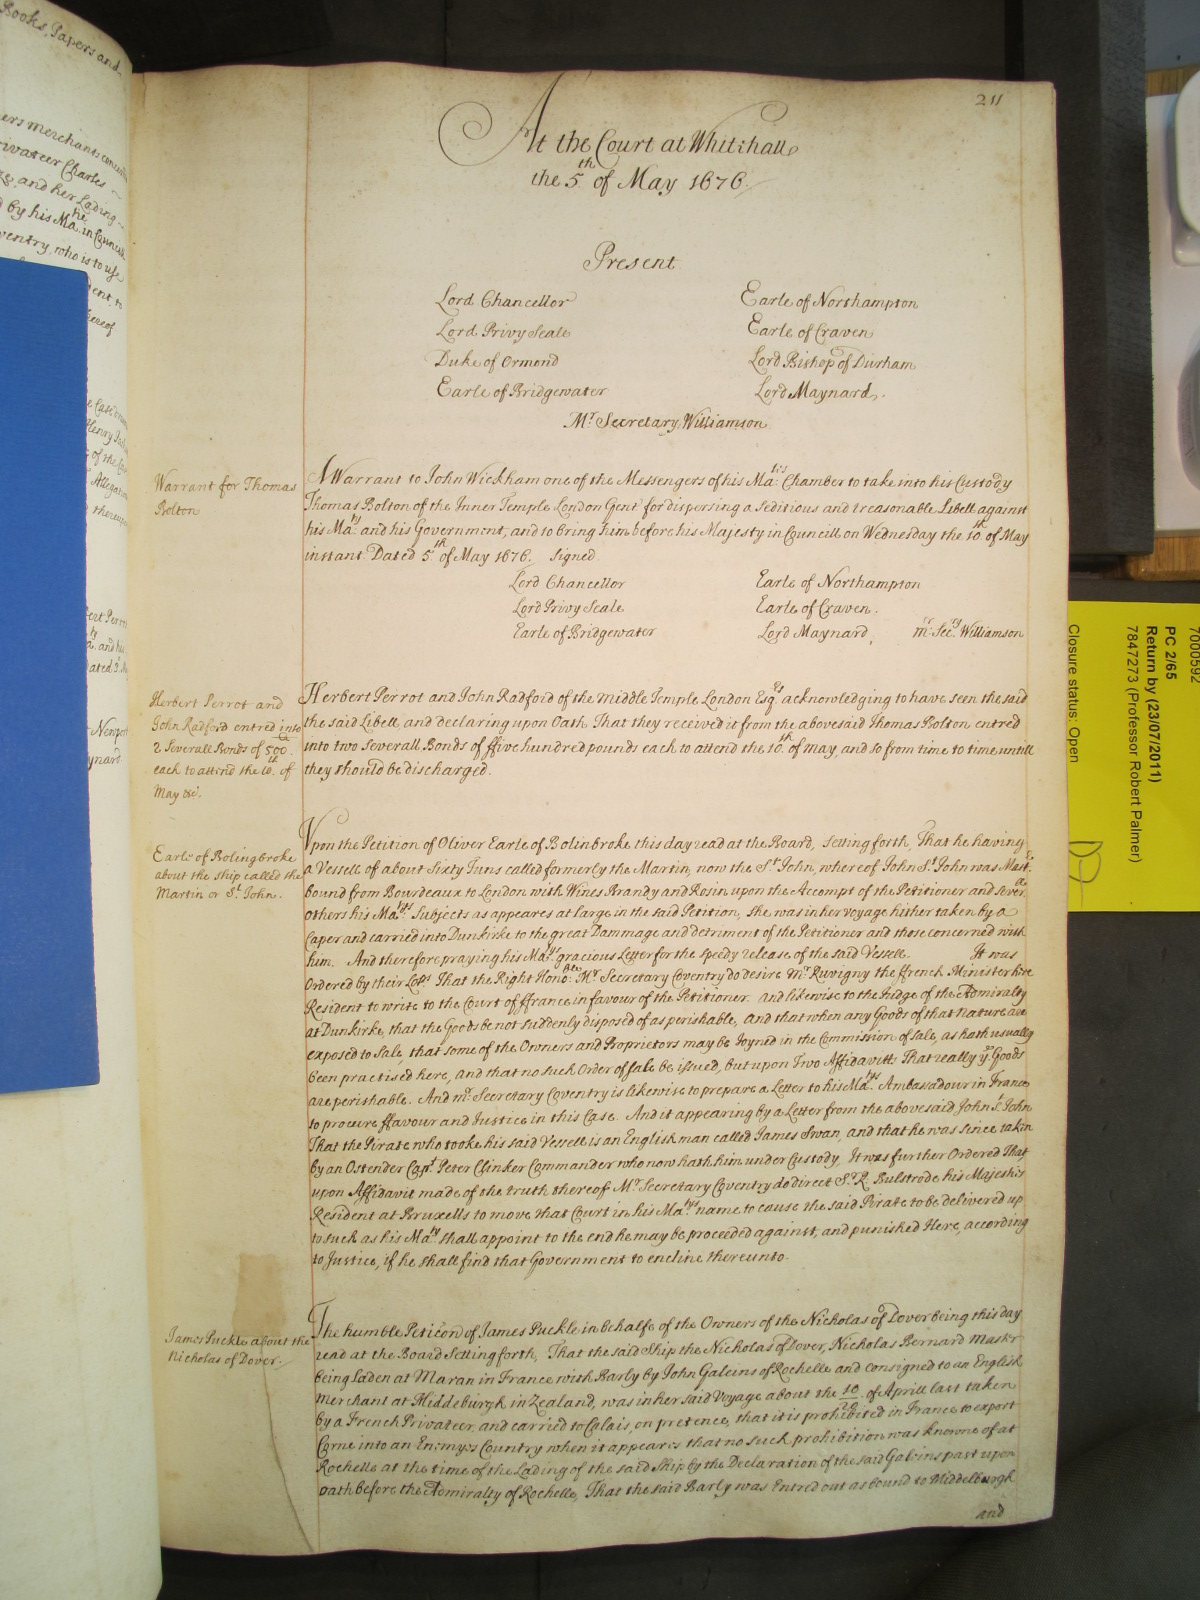 Books, Papers and
ers merchants
rivateer Charles
and her Lading
d by his Ma. he in Councill
ventry, who is to use
dent to
hereof
Henry
of the
Allegation
thereupon
Perrot
and his
ated 3.
Newport
ynard
211
At the Court at Whitehall
the 5th of May 1676.
Present
Lord Chancellor Earle of Northampton
Lord Privy Seale Earle of Craven
Duke of Ormond Lord Bishop of Durham
Earle of Bridgewater Lord Maynard.
Mr Secretary Williamson
Warrant for Thomas
Bolton
A Warrant to John Wickham one of the Messengers of his Ma:ties Chamber to take into his Custody
Thomas Bolton of the Inner Temple London Gent for dispersing a Seditious and treasonable Libell against
his Ma:ty and his Government, and to bring him before his Majesty in Councill on Wednesday the 10th of May
instant. Dated 5th of May 1676. Signed
Lord Chancellor Earle of Northampton
Lord Privy Seale Earle of Craven.
Earle of Bridgewater Lord Maynard, Mr Sec:ry Williamson
Herbert Perrot and
John Radford entred into
2 Severall Bonds of 500
each to attend the 10th of
May &c.
Herbert Perrot and John Radford of the Middle Temple London Esqrs acknowledging to have seen the said
the said Libell, and declaring upon Oath That they received it from the abovesaid Thomas Bolton entred
into two Severall Bonds of ffive hundred pounds each to attend the 10th of may, and so from time to time untill
they should be discharged.
Earle of Bolingbroke
about the ship called the
Martin or St John.
Vpon the Petition of Oliver Earle of Bolinbroke this day read at the Board, Setting forth, That he having
a Vessell of about Sixty Tuns called formerly the Martin, now the St John, whereof John St John was Mastr
bound from Bourdeaux to London with Wines Brandy and Rosin upon the Accompt of the Petitioner and severll
others his Ma:tys Subjects as appeares at large in the said Petition, She was in her voyage hither taken by a
Caper and carried into Dunkirke to the great Dammage and detriment of the Petitioner and those concerned with
him. And therefore praying his Ma:tys gracious Letter for the speedy release of the said Vessell. It was
Ordered by their Lops. That the Right Honoble: Mr Secretary Coventry do desire Mr Ruvigny the ffrench Minister here
Resident to write to the Court of ffrance in favour of the Petitioner. and likewise to the Judge of the Admiralty
at Dunkirke, that the Goods be not suddenly disposed of as perishable, and that when any Goods of that nature are
exposed to Sale, that some of the Owners and Proprietors may be Joyned in the Commission of sale, as hath usually
been practised here, and that no such Order of sale be issued, but upon Two Affidavitts That really ye Goods
are perishable. And mr Secretary Coventry is likewise to prepare a Letter to his Ma:tys Ambassadour in France
to procure ffavour and Justice in this Case. And it appearing by a Letter from the abovesaid John St John
That the Pirate who tooke his said Vessell is an Englishman called James Swan, and that he was since taken
by an Ostender Capt Peter Clinker Commander who now hath him under Custody It was further Ordered That
upon Affidavit made of the truth thereof Mr Secretary Coventry do direct Sr R. Bulstrode his Majesties
Resident at Bruxells to move that Court in his Ma:tys name to cause the said Pirate to be delivered up
to such as his Ma:ty shall appoint to the end he may be proceeded against, and punished Here, according
to Justice, if he shall find that Government to encline thereunto.
James Puckle about the
Nicholas of Dover.
The humble Peticon of James Puckle in behalfe of the Owners of the Nicholas of Dover being this day
read at the Board Setting forth, That the said Ship the Nicholas of Dover, Nicholas Bernard Master
being Laden at Maran in France with Barly by John Galeins of Rochelle and consigned to an English
Merchant at Middeburgh in Zealand, was in her said Voyage about the 10/20 of Aprill last taken
by a French Privateer, and carried to Calais, on pretence, that it is prohibited in France to export
Corne into an Enemys Country when it appeares that no such prohibition was knowne of at
Rochelle at the time of the Lading of the said Ship by the Declaration of the said Galeins past upon
oath before the Admiralty of Rochelle, That the said Barly was Entred out as bound to Middelburgh
and
7000592
PC 2/65
Return by (23/07/2011)
7847273 (Professor Robert Palmer)
Closure status: Open